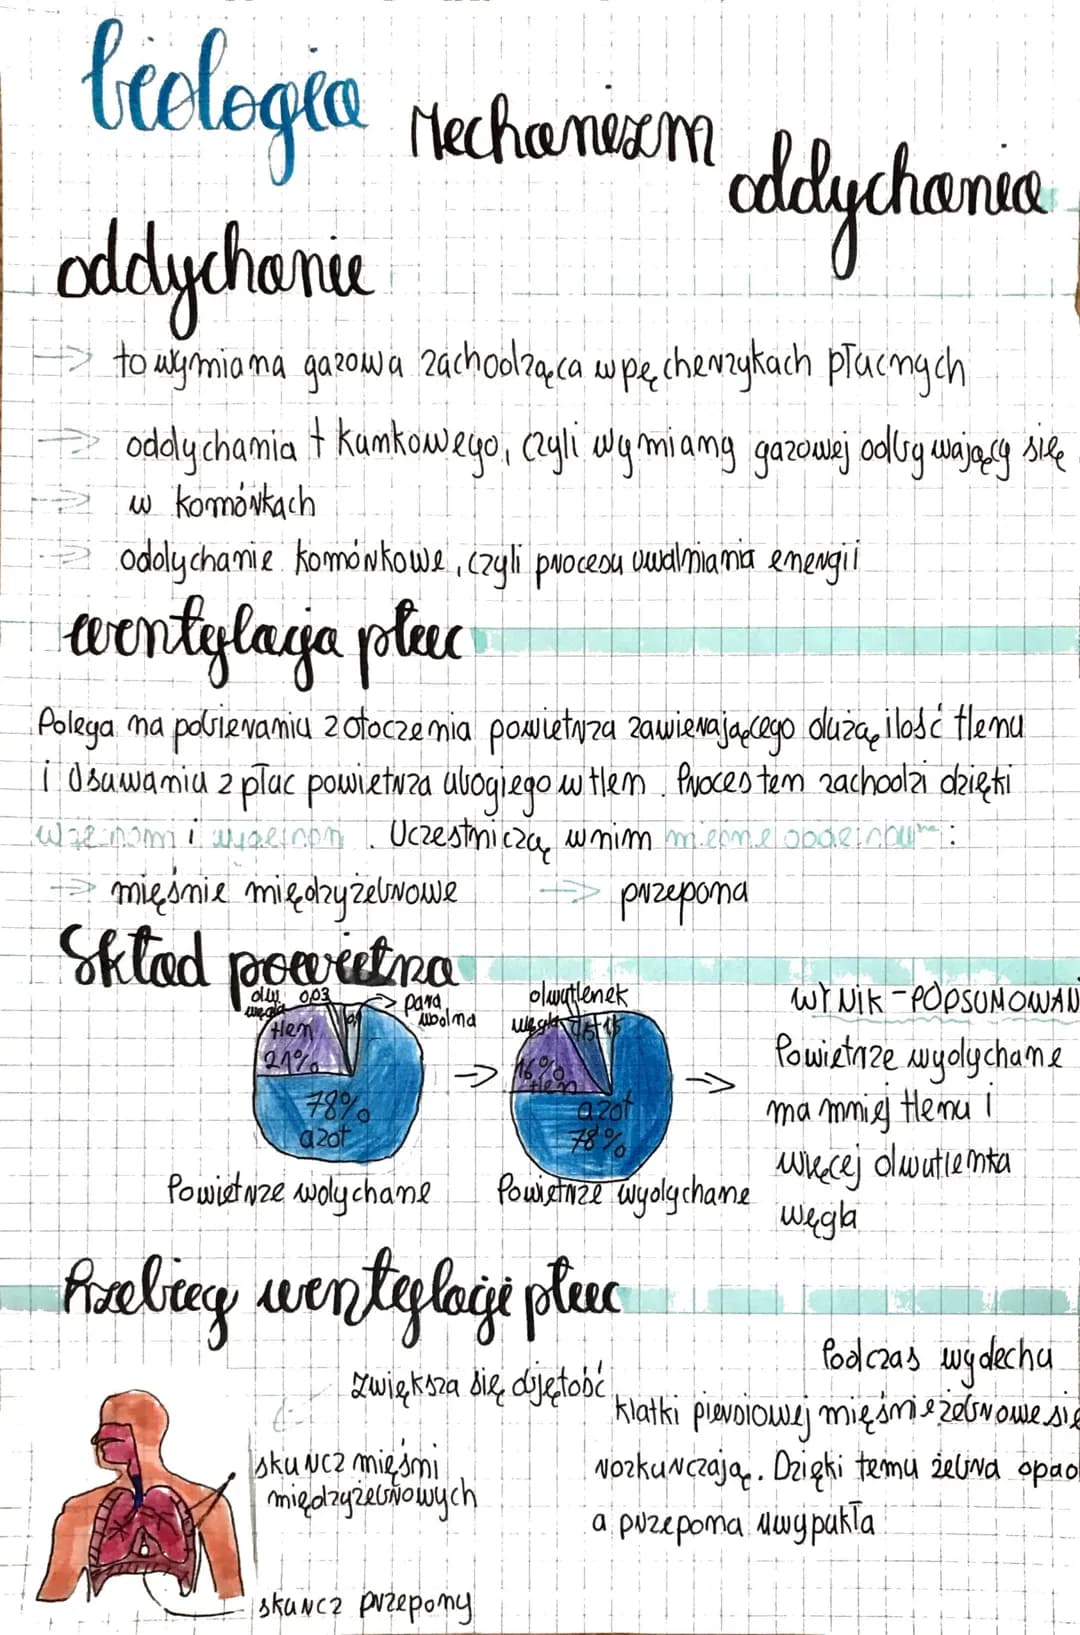 biologia
Mechanizm
oddychania
oddychanie
→ to wymiana gazowa zachodząca w pęcherzykach płucnych
→ oddychania tkankowego, czyli wymiany gazowej odbywający się
→ w komórkach
→ oddychanie komórkowe, czyli procesu uwalniania energii
wentylacja płuc
Polega na pobieraniu z otoczenia powietrza zawierającego dużą ilość tlenu
i usuwaniu z płuc powietrza ubogiego w tlen. Proces ten zachodzi dzięki
i. Uczestniczą w nim:
→ mięśnie międzyżebrowe → przepona
Skład powietrza
dw. węgla 0,03 → para wodna
tlen
21%
78%
azot
Powietrze wdychane
→
dwutlenek
węgla
16%
tlen
azot
78%
Powietrze wydychane
→
WYNIK - POPSUMOWAN
Powietrze wydychane
ma mniej tlenu i
więcej dwutlenka
węgla
Przebieg wentylacji płuc
zwiększa się objętość
skurcz mięśni
międzyżebrowych
skurcz przepony
Podczas wydechu
klatki piersiowej mięśnie żebrowe się
rozkurczają. Dzięki temu żebra opad
a przepona uwypukła